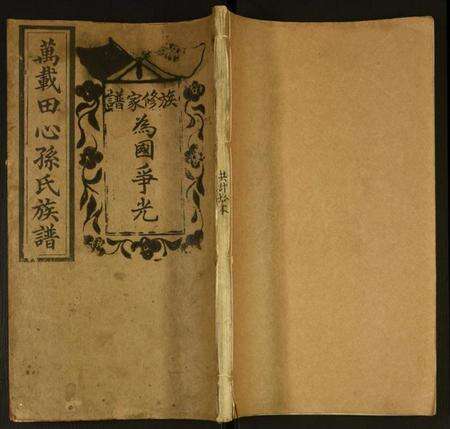 萬載田心孫氏族譜
族修家譜
為國爭光
共計拾本